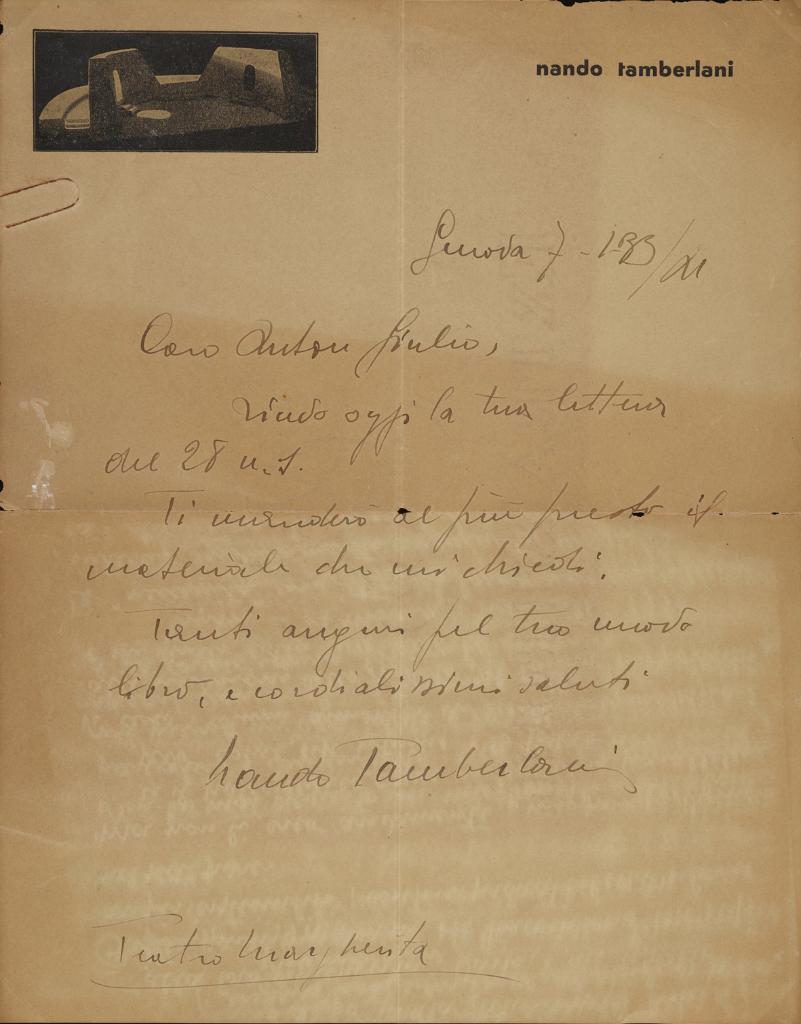 nando tamberlani
Genova 7 - 1-33/XI
Caro Anton Giulio,
ricevo oggi la tua lettera
del 28 u.s.
Ti manderò al più presto il
materiale che mi chiedi.
Tanti auguri pel tuo nuovo
libro, e cordialissimi saluti
Nando Tamberlani
Teatro Margherita